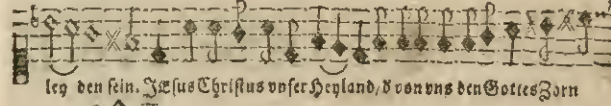 ley den sein. Jesus Christus vnser Heyland / d von vns den Gottes Zorn